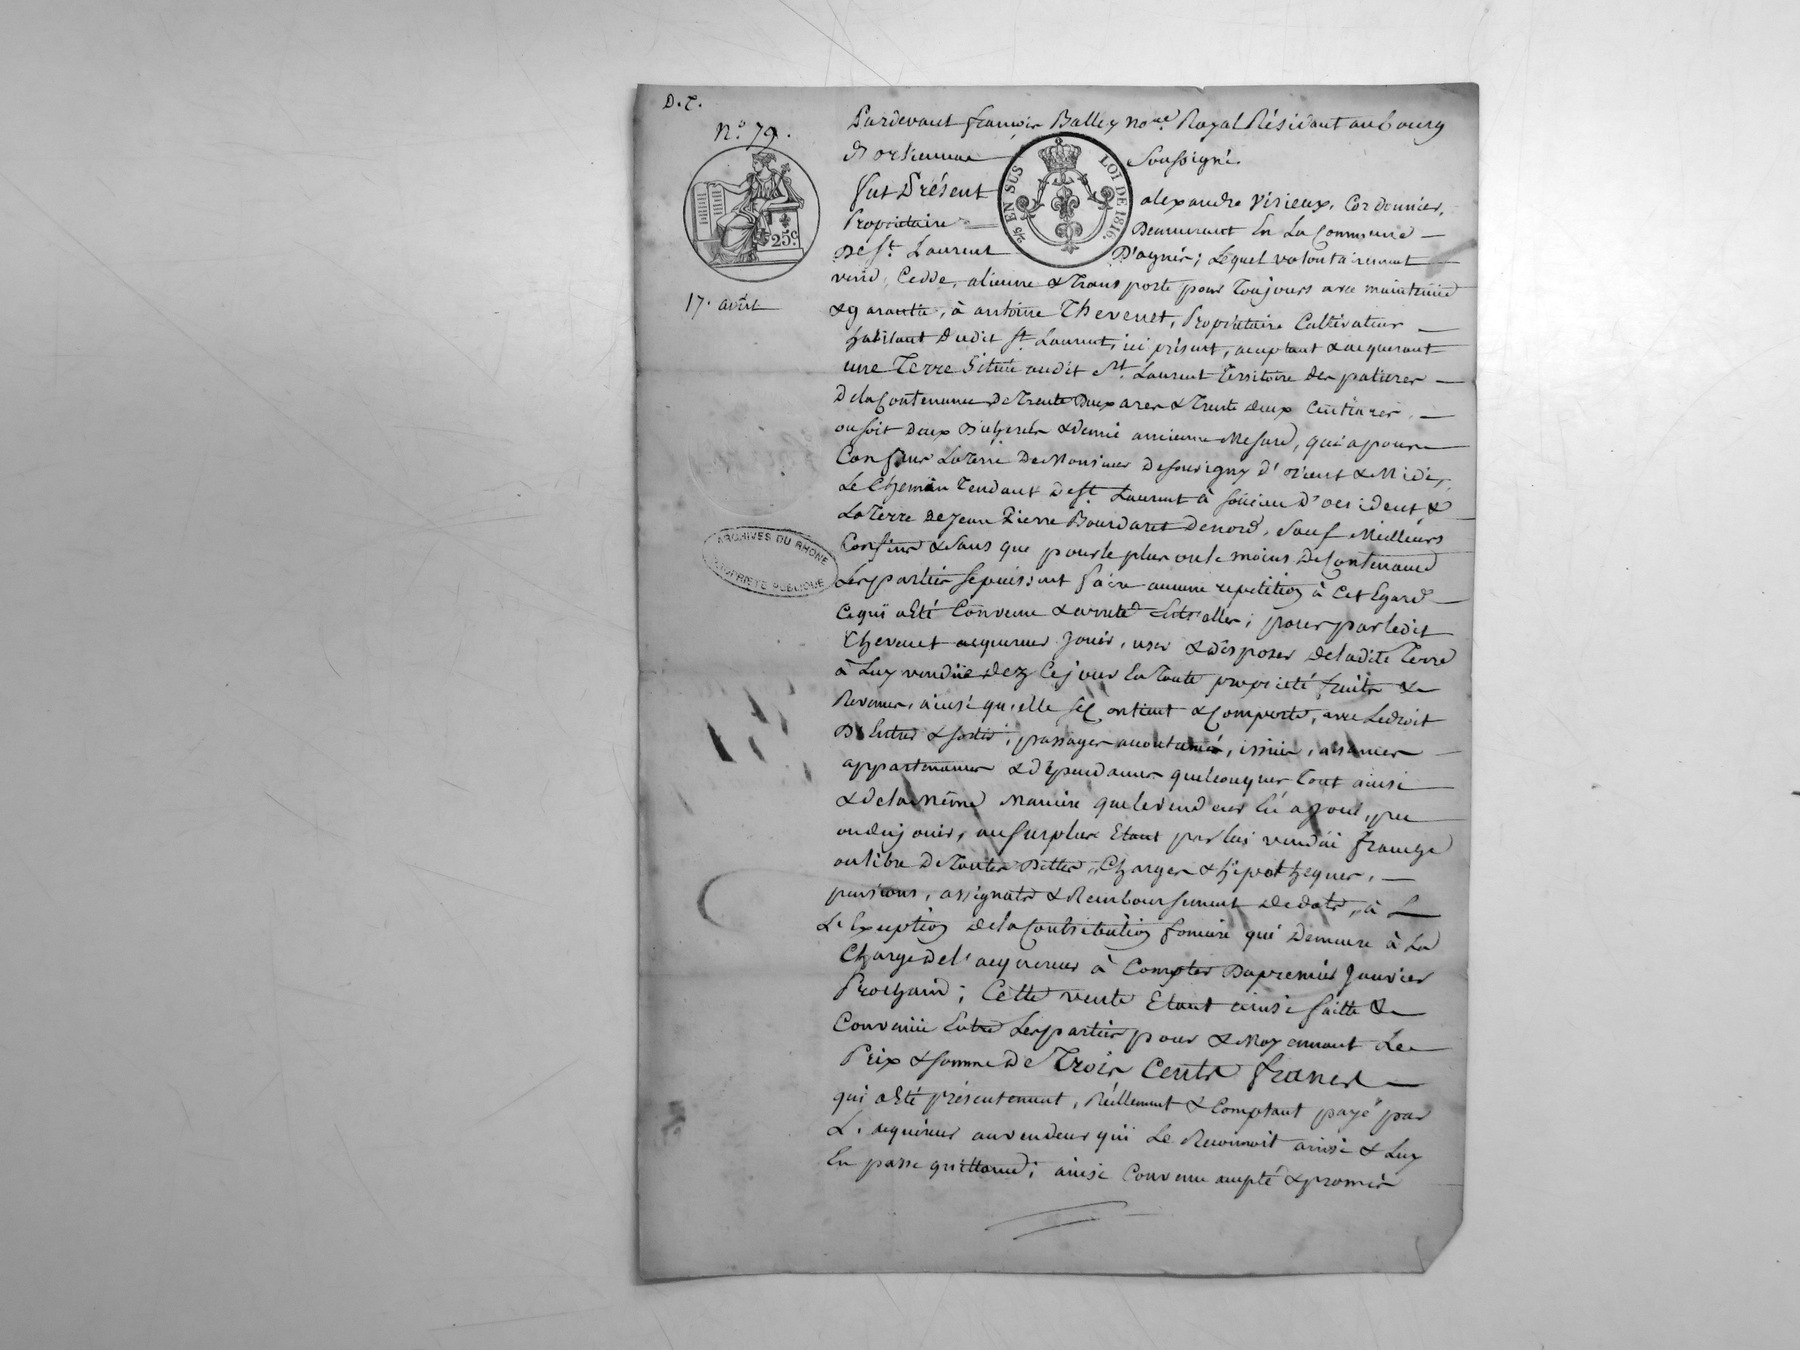 D.T.
N.° 79.
25.c
17. août
ARCHIVES DU RHONE
PROPRIÉTÉ PUBLIQUE
2/5 EN SUS LOI DE 1816.
Pardevant françois Balley no.re Royal Résidant au bourg
D'orlienna Soussigné
fut Présent alexandre Virieux, Cordonnier,
Propriétaire Demeurant En La Commune
De St. Laurent D'agnir; Lequel volontairement
vend, Cedde, alienne & Transporte pour Toujours avec maintenüe
& garantie, à antoine Thevenet, Propriétaire Cultivateur
habitant dudit St. Laurent, ici présent, acceptant & acquerant
une Terre Situèe audit St. Laurent Territoire des
De la Contenance De Trente Deux ares & Trente deux Centiares,
ou soit deux Bicherés & demie ancienne Mesure, qui a pour
Confins La Terre De Monsieur Desouvigny d'orient & Midi,
Le Chemin Tendant de St. Laurent à Soucieu D'occident &
La Terre de Jean Pierre Bourdaret de nord, Sauf Meilleurs
Confins & Sans que pour le plus ou le moins De Contenance
Les parties se puissent faire aucune repetition à Cet Egard
Ce qui a Eté Convenu & arreté Entr'elles; pour par ledit
Thevenet acquereur Jouir, user & disposer de la dite Terre
à Luy vendüe dez Ce jour En Toute propriété fruits &
Revenus, ainsi qu'elle se Contient & Comporte, avec Le droit
D'Entrée & sortie, passages accoutumés, issües, aisances
appartenances & dépendances quelconques Tout ainsi
& de la Même Maniere que le vendeur En a joui, pu
ou du jouir, au Surplus Etant par lui vendüe franche
ou libre De Toutes Dettes, Charges & hipothèques,
pensions, assignats & Remboursement de dots, à
L'Exception de la Contribution fonciere qui Demeure à La
Charge de l'acquereur à Compter Du premier Janvier
Prochain; Cette vente Etant ainsi faitte &
Convenüe Entre Les parties pour & Moyennant Le
Prix & somme De Trois Cents francs
qui a Eté présentement, Réellement & Comptant payé par
L'acquéreur au vendeur qui Le Reconnoit ainsi & Luy
En passe quittance; ainsi Convenu accepté & promis